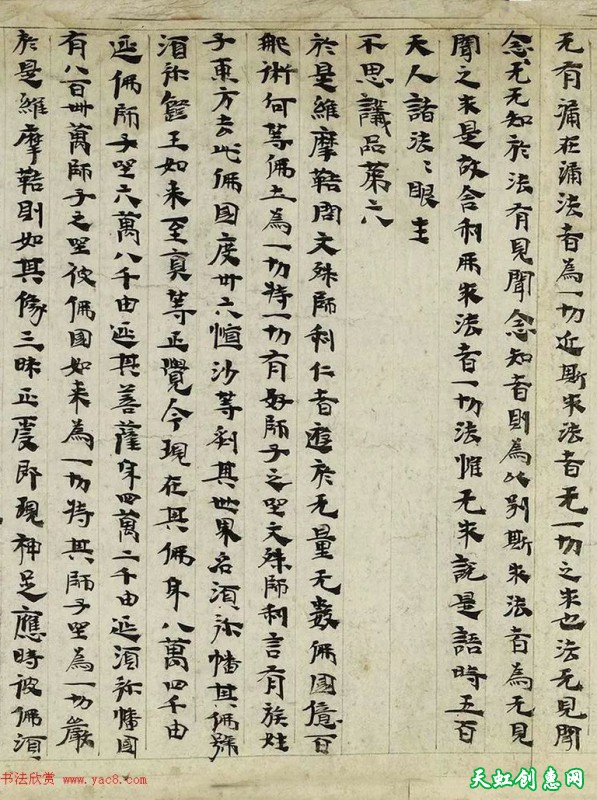 无有漏在漏法者為一切近斯求法者无一切之求也法无見聞
念无无知於法有見聞念知者則為以别斯求法者為无見
聞之求是故舍利弗求法者一切法惟无求說是語時五百
天人諸法〻眼生
不思議品苐六
於是維摩鞊問文殊師利仁者遊於无量无数佛國億百
那術何等佛土為一切持一切有好師子之坐文殊師利言有族姓
子東方去此佛國度卅六恒沙等刹其世界名湏弥幡其佛號
湏弥燈王如来至真等正覺今現在其佛身八萬四千由
延佛師子坐六萬八千由延其菩薩身四萬二千由延湏弥幡國
有八百卌萬師子之坐彼佛國如来為一切持其師子坐為一切嚴
於是維摩鞊則如其像三昧正受即現神足應時彼佛湏
书法欣赏 www.yac8.com
天虹创惠网